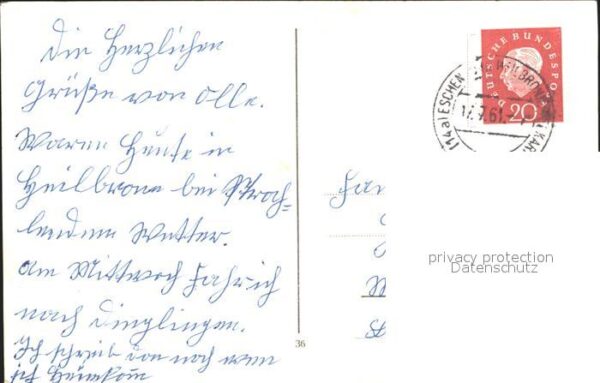 Die Herzlichen
Grüße von Olle.
Waren Heute in
Heilbronn bei Strah-
lendem Wetter.
Am Mittwoch fahr ich
nach Dinglingen.
Ich schreib dan noch wen
ich Heimkom
36
Fam
DEUTSCHE BUNDESPOST
20
(14a) ESCHEN
HEILBRONN
17.7.61
privacy protection
Datenschutz